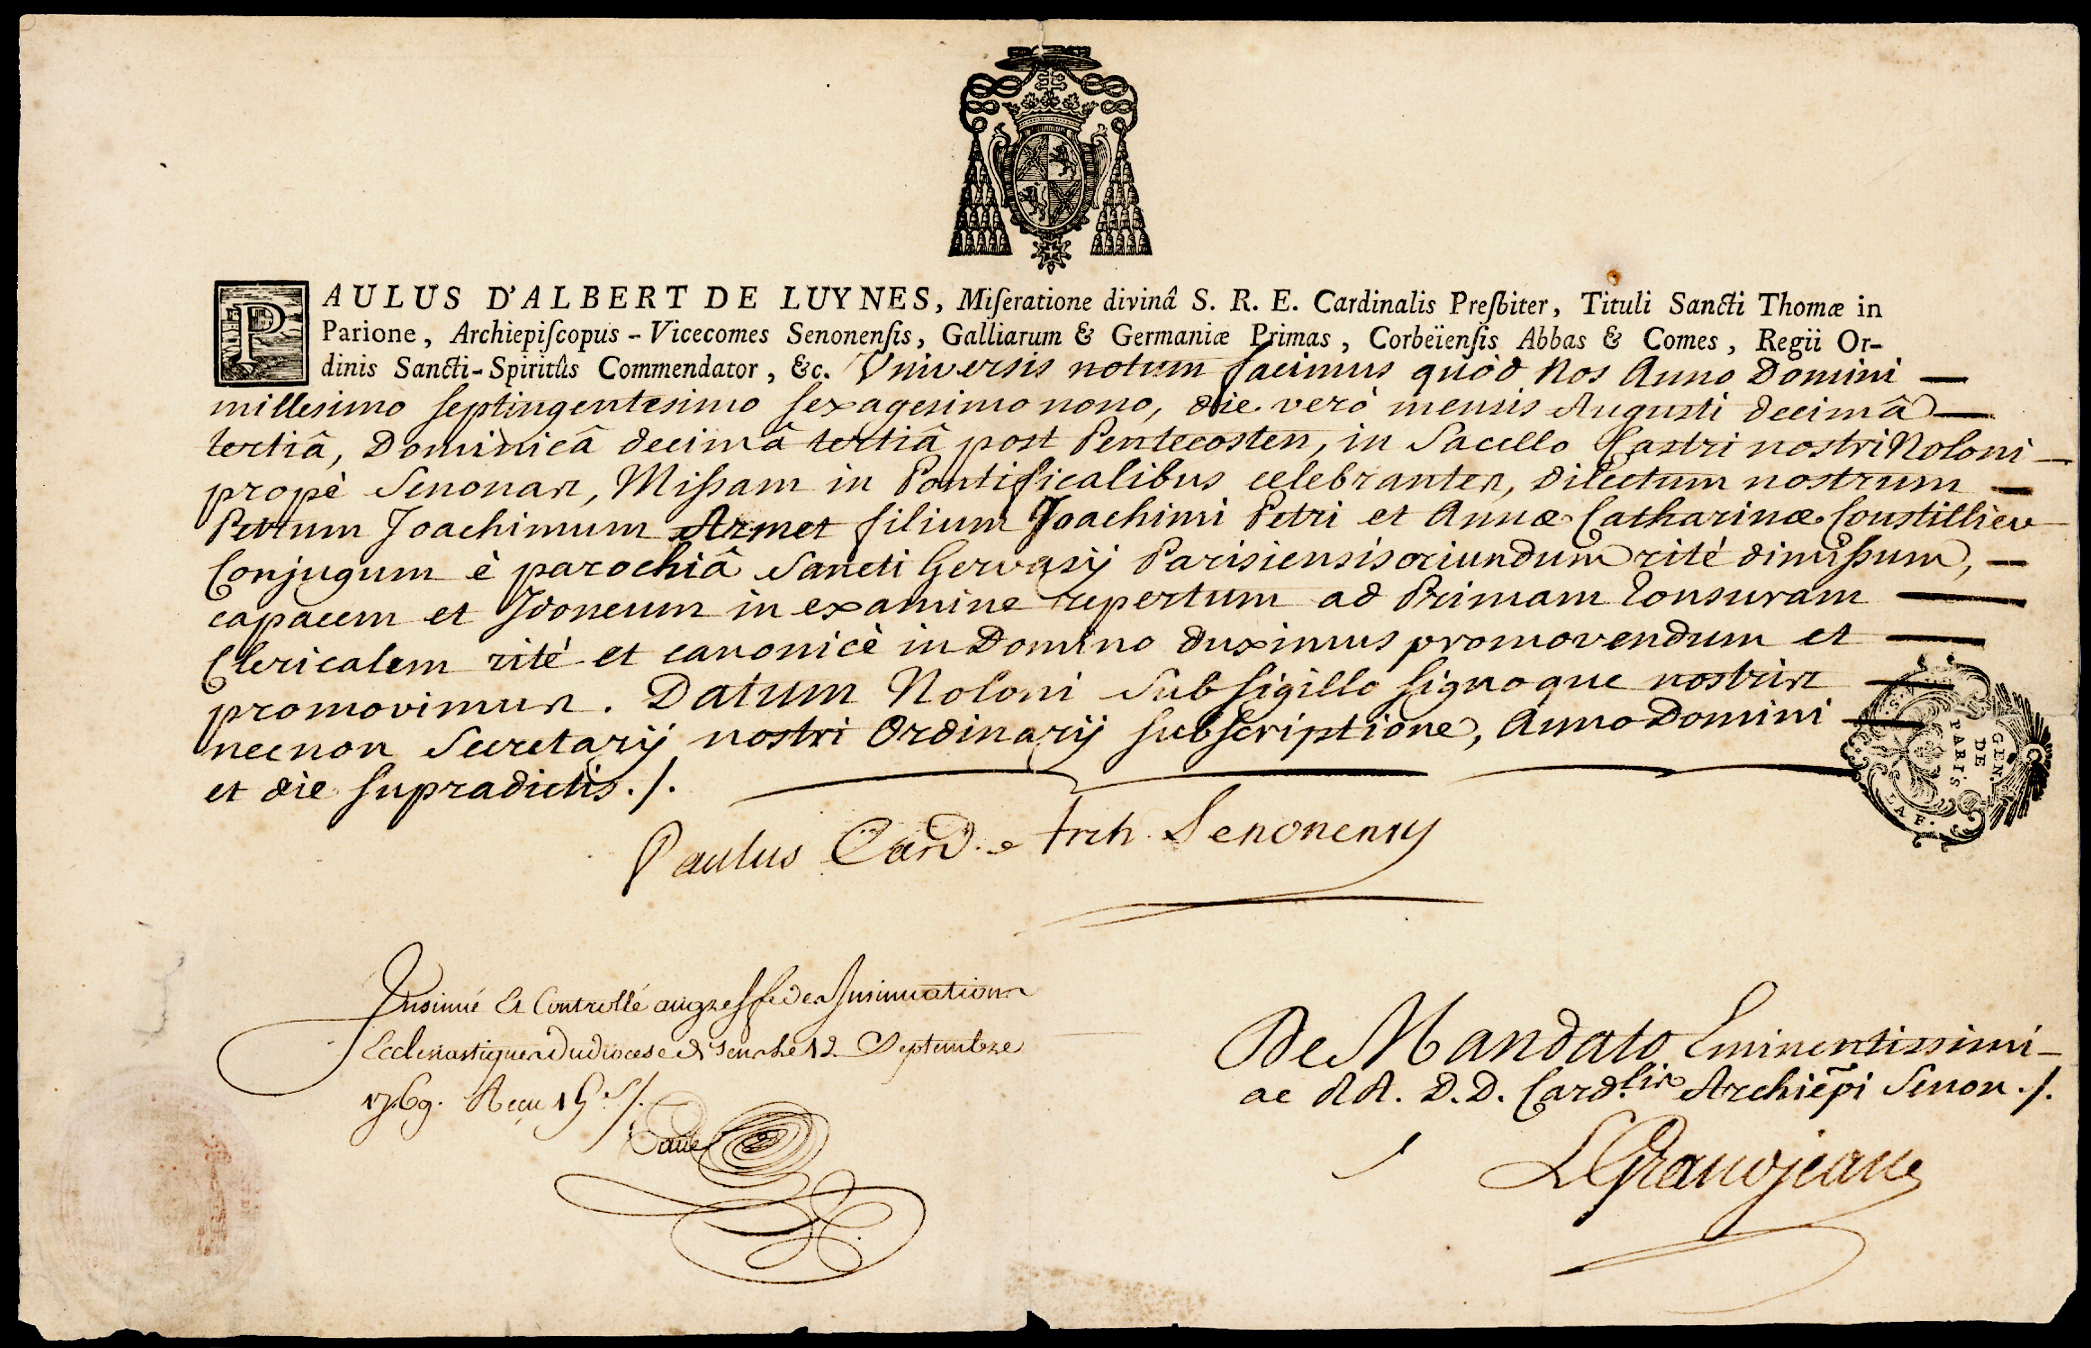 PAULUS D'ALBERT DE LUYNES, Miſeratione divinâ S. R. E. Cardinalis Preſbiter, Tituli Sancti Thomæ in
Parione, Archiepiſcopus - Vicecomes Senonenſis, Galliarum & Germaniæ Primas, Corbeïenſis Abbas & Comes, Regii Or-
dinis Sancti-Spiritûs Commendator, &c. Universis notum facimus quòd Nos Anno Domini —
millesimo septingentesimo sexagesimo nono, die verò mensis Augusti decimâ —
tertiâ, Dominicâ decimâ tertiâ post Pentecosten, in Sacello Castri nostri Noloni —
propè Senonas, Missam in Pontificalibus celebrantes, dilectum nostrum —
Petrum Joachimum Armet filium Joachimi Petri et Annæ Catharinæ Coustillier
Conjugum è parochiâ Sancti Gervasij Parisiensis oriundum rité dimissum, —
capacem et Idoneum in examine repertum ad Primam Tonsuram —
Clericalem rité et canonicè in Domino duximus promovendum et —
promovimus. Datum Noloni sub sigillo signoque nostris —
necnon Secretarij nostri Ordinarij subscriptione, Anno Domini —
et die supradictis./.
GEN.
DE
PARIS
Paulus Card. Arch. Senonensis
Insinué Et Controllé au greffe des Insinuations
Ecclesiastiques du diocese de Sens le 12 Septembre
1769. Reçu 15.s/.
De Mandato Eminentissimi —
ac RR. D.D. Card.lis Archiēpi Senon./.
LGrandjean